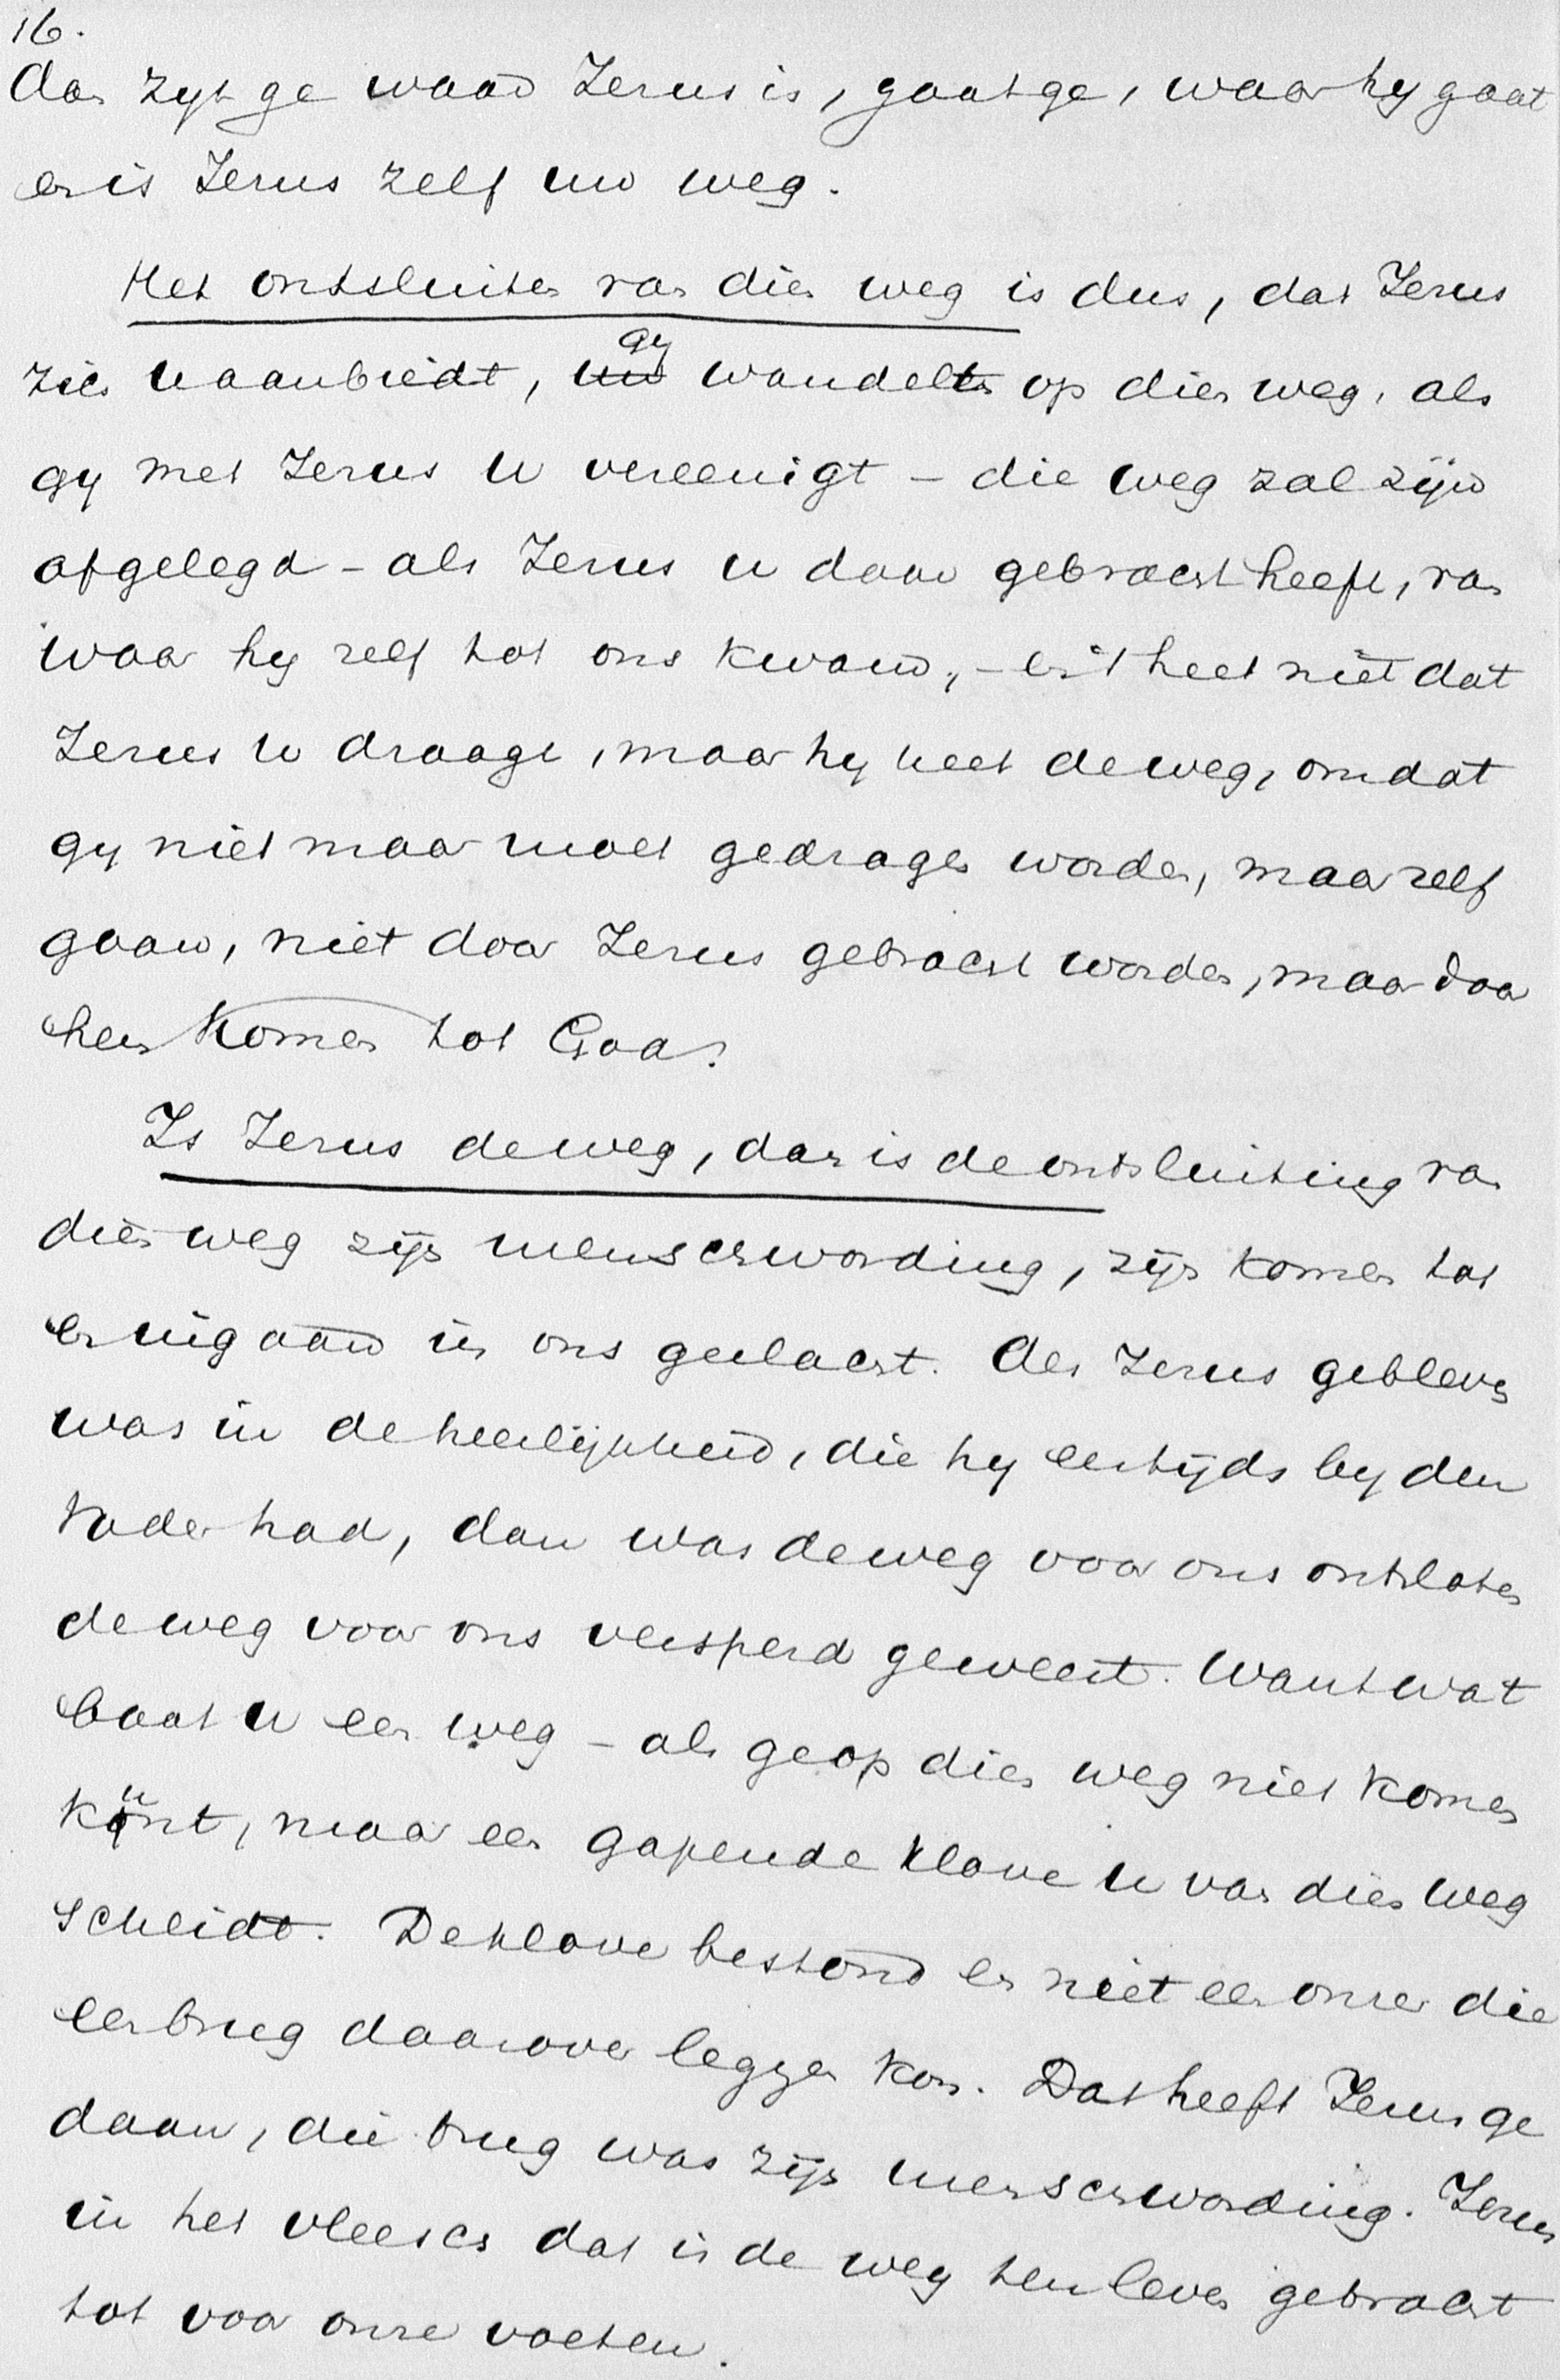 16.
dan zyt ge waar Jezus is, gaat ge, waar hy gaat
en is Jezus zelf uw weg.
Het ontsluiten van dien weg is dus, dat Jezus
zich u aanbiedt, gy wandelt op dien weg, als
gy met Jezus u vereenigt – die weg zal zijn
afgelegd – als Jezus u daar gebracht heeft, van
waar hy zelf tot ons kwam, – en 't heet niet dat
Jezus u draagt, maar hy heet de weg, omdat
gy niet maar moet gedragen worden, maar zelf
gaan, niet door Jezus gebracht worden, maar door
hem komen tot God.
Is Jezus de weg, dan is de ontsluiting van
dien weg zijn menschwording, zijn komen tot
en ingaan in ons geslacht. Als Jezus gebleven
was in de heerlijkheid, die hy eertijds by den
Vader had, dan was de weg voor ons ontsloten
de weg voor ons versperd geweest. Want wat
baat u een weg – als ge op dien weg niet komen
kunt, maar een gapende klove u van dien weg
scheidt. De klove bestond en niet een onzer die
een brug daarover leggen kon. Dat heeft Jezus ge
daan, die brug was zijn menschwording. Jezus
in het vleesch dat is de weg ten leven gebracht
tot voor onze voeten.